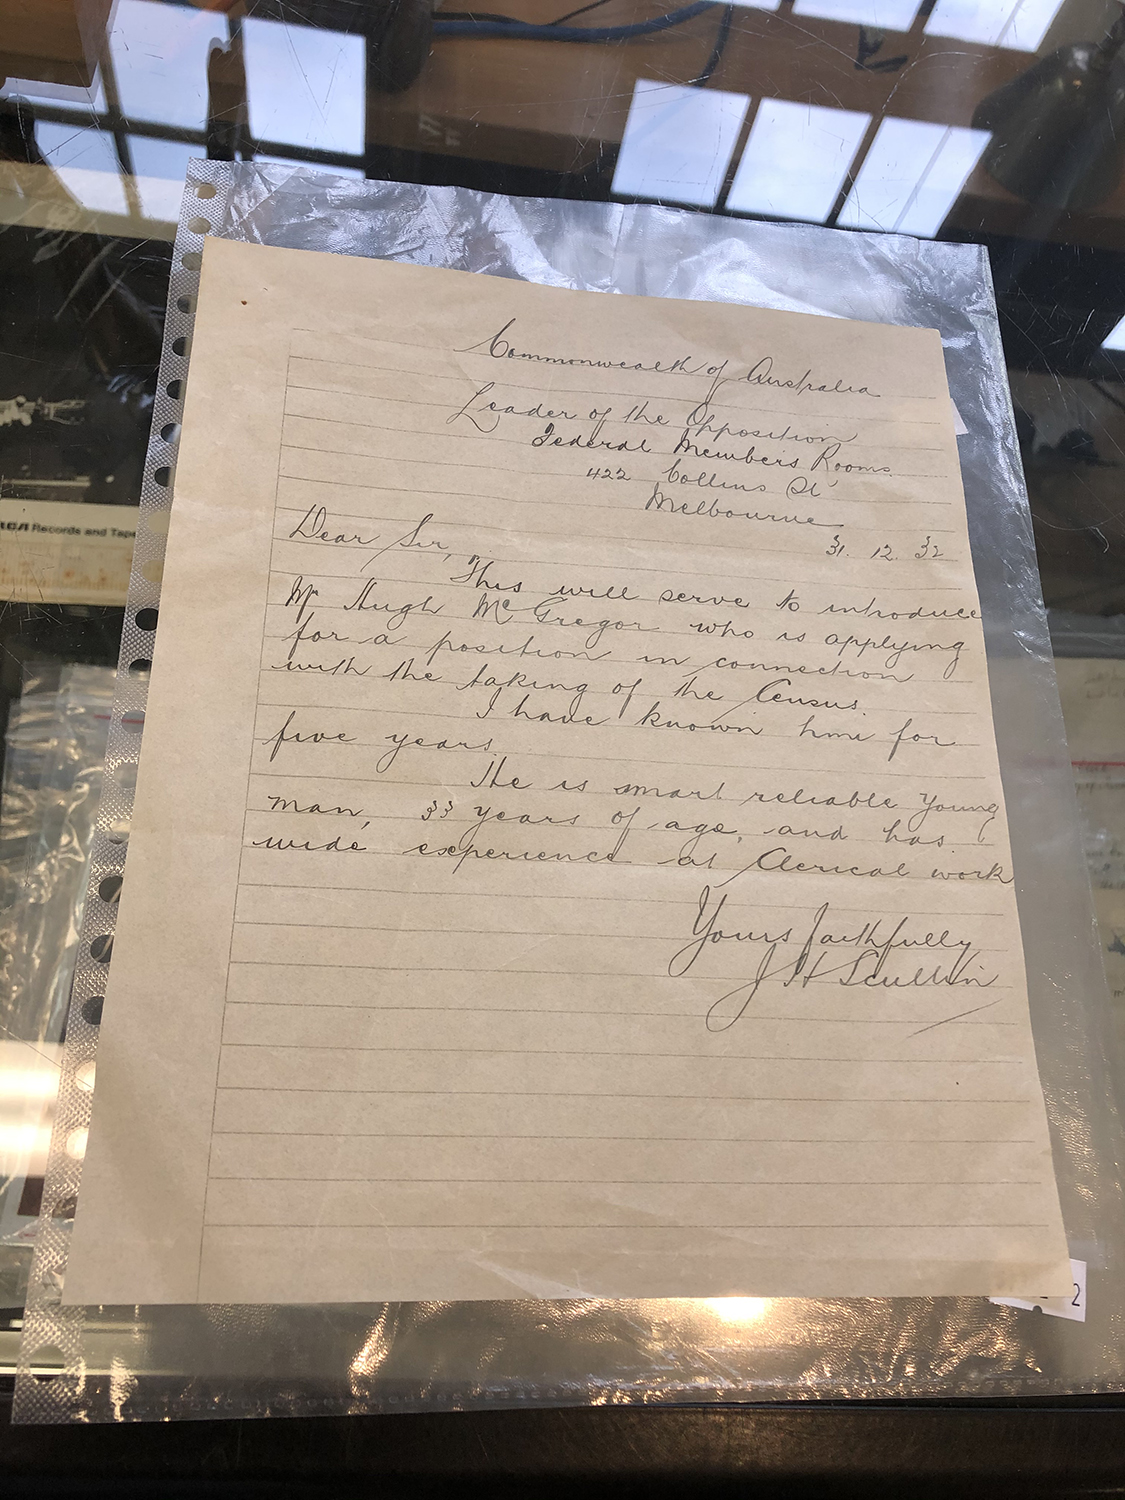 Commonwealth of Australia
Leader of the Opposition
Federal Members Rooms
422 Collins St
Melbourne
31. 12. 32
Dear Sir,
This will serve to introduce
Mr Hugh McGregor who is applying
for a position in connection
with the taking of the Census.
I have known him for
five years.
He is smart reliable young
man, 33 years of age, and has
wide experience at Clerical work
Yours faithfully
J H Scullin
RCA Records and Tape
2